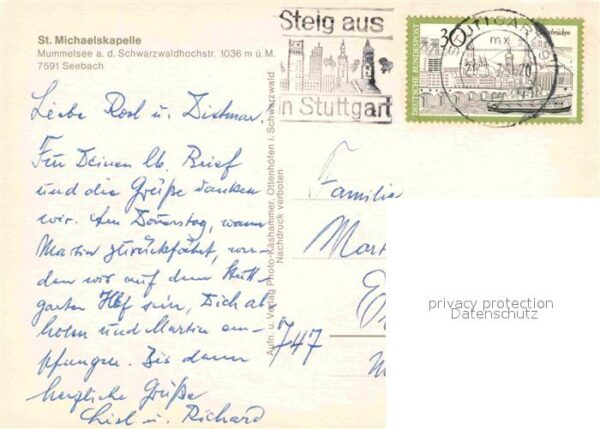 St. Michaelskapelle
Mummelsee a. d. Schwarzwaldhochstr. 1036 m ü. M.
7591 Seebach
Liebe Rosl u. Dietmar.
Für Deinen lb. Brief
und die Grüße danken
wir. Am Donnerstag, wann
Martin zurückfährt, wer-
den wir auf dem Stutt-
garter Hbf sein, Dich ab
holen und Martin em-
pfangen. Bis dann
herzliche Grüße
Liesl u. Richard
Aufn. u. Verlag Photo-Käshammer, Ottenhöfen i. Schwarzwald
Nachdruck verboten
Steig aus
in Stuttgart
STUTTGART
mx
30
DEUTSCHE BUNDESPOST
Familie
747
privacy protection
Datenschutz